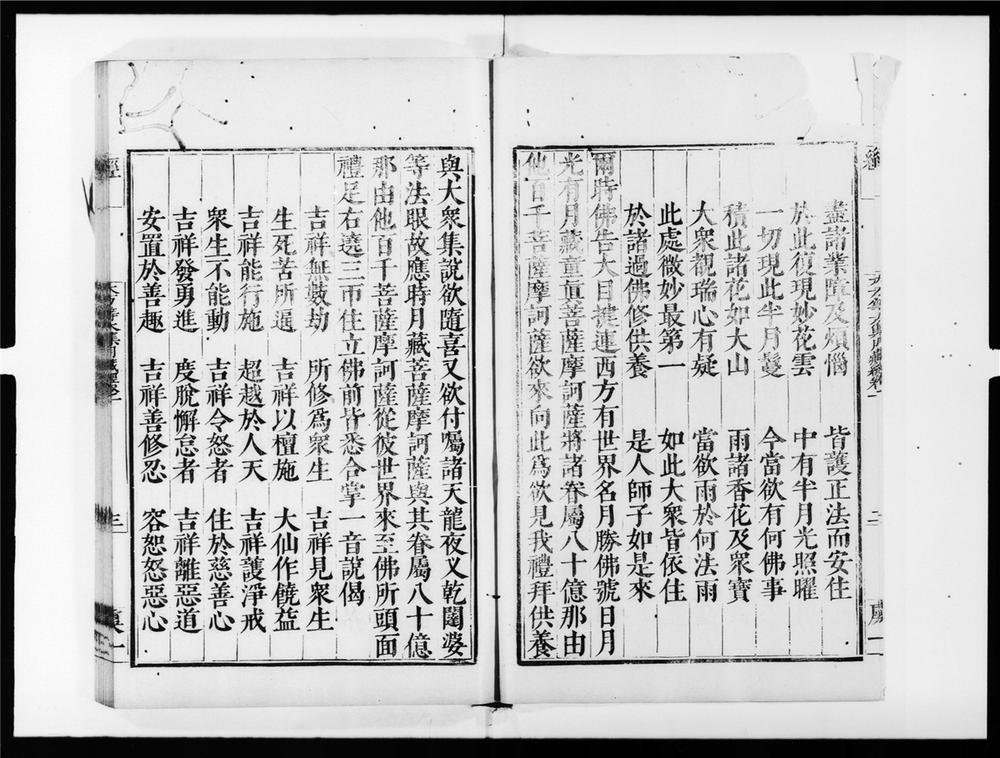 盡諸業障及煩惱 皆護正法而安住
於此復現妙花雲 中有半月光照曜
一切現此半月鬘 今當欲有何佛事
積此諸花如大山 雨諸香花及衆寶
大衆覩瑞心有疑 當欲雨於何法雨
此處微妙最第一 如此大衆皆依住
於諸過佛修供養 是人師子如是來
爾時佛告大目揵連西方有世界名月勝佛號日月
光有月藏童真菩薩摩訶薩將諸眷屬八十億那由
他百千菩薩摩訶薩欲來向此爲欲見我禮拜供養
與大衆集說欲隨喜又欲付囑諸天龍夜叉乾闥婆
等法眼故應時月藏菩薩摩訶薩與其眷屬八十億
那由他百千菩薩摩訶薩從彼世界來至佛所頭面
禮足右遶三帀住立佛前皆悉合掌一音說偈
吉祥無數劫 所修爲衆生 吉祥見衆生
生死苦所逼 吉祥以檀施 大仙作饒益
吉祥能行施 超越於人天 吉祥護淨戒
衆生不能動 吉祥令怒者 住於慈善心
吉祥發勇進 度脫懈怠者 吉祥離惡道
安置於善趣 吉祥善修忍 容恕怒惡心
經 三